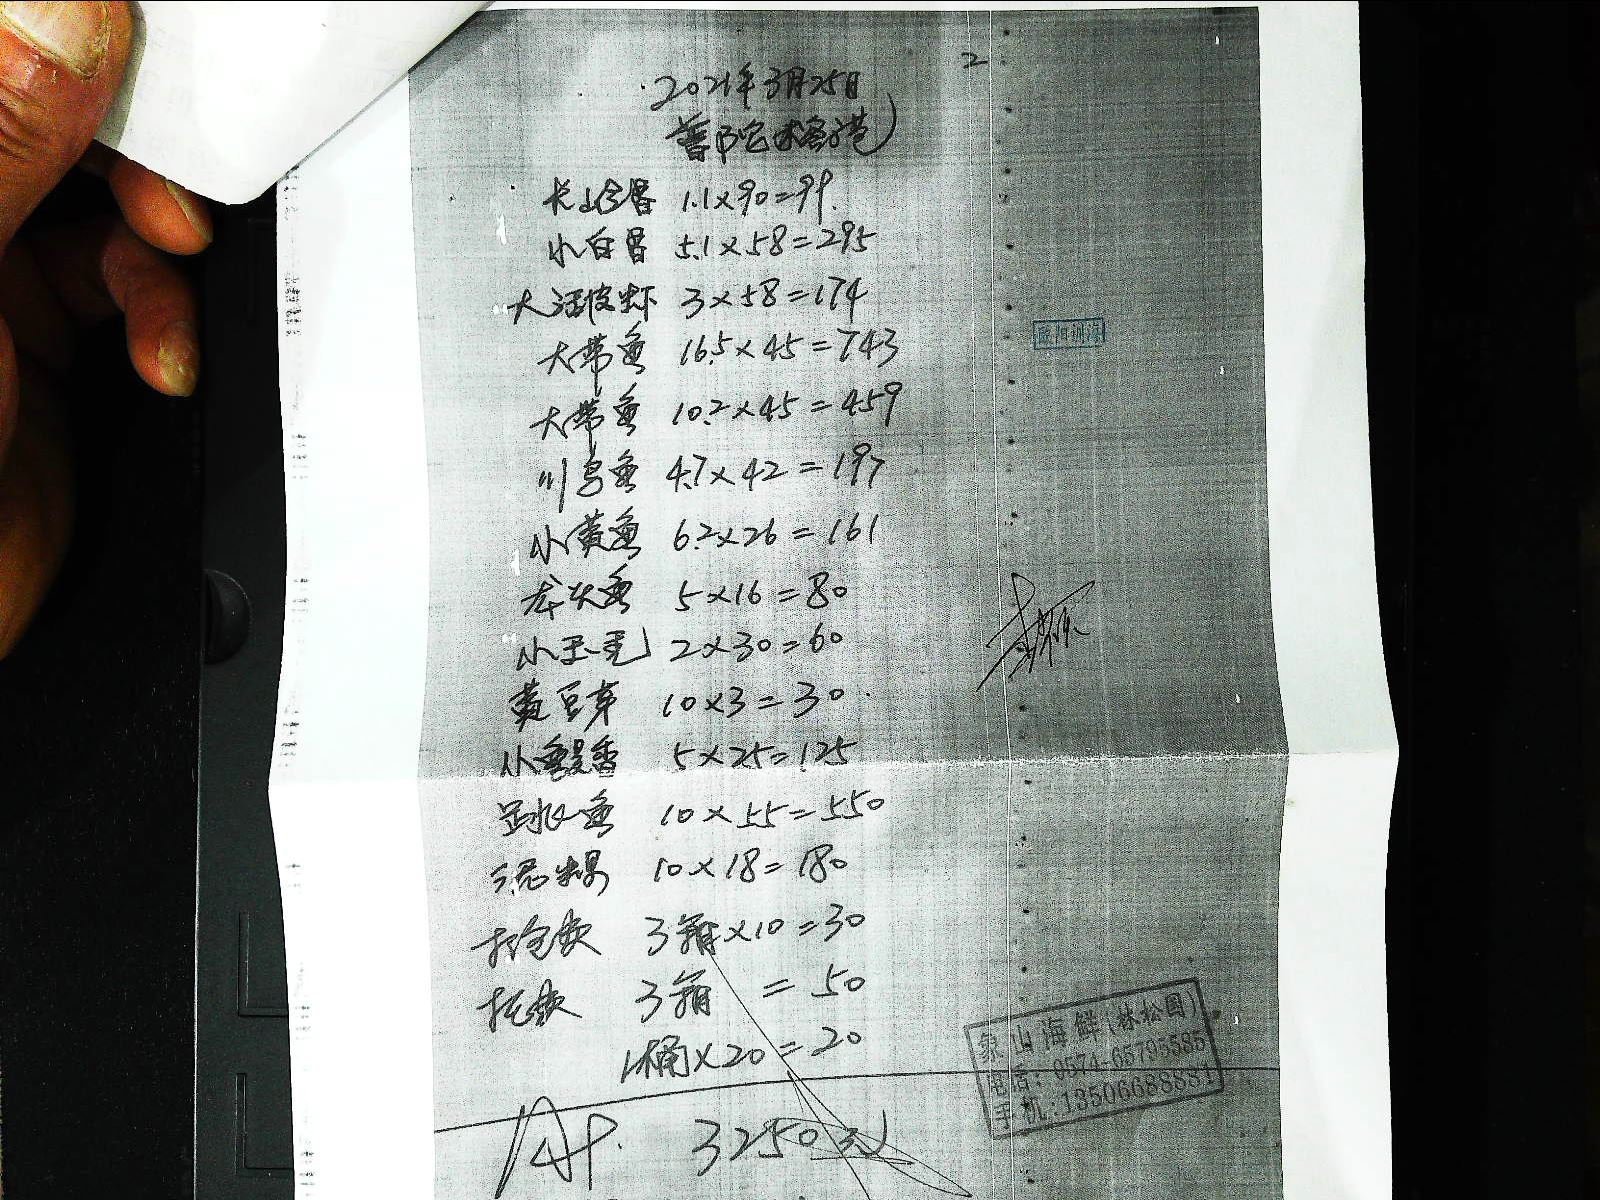 2
2021年3月25日
普陀
1.1×90=99.
小白 5.1×58=295
大 3×58=174
大带鱼 16.5×45=743
大带鱼 10.2×45=459
鱼 4.7×42=197
小黄鱼 6.2×26=161
龙头鱼 5×16=80
小玉秃 2×30=60
黄豆芽 10×3=30
小 5×25=125
跳鱼 10×55=550
泥螺 10×18=180
打包费 3箱×10=30
托费 3箱 =50
1桶×20=20
3250元
象山海鲜(林松国)
电话:0574-65795585
手机:13506688881